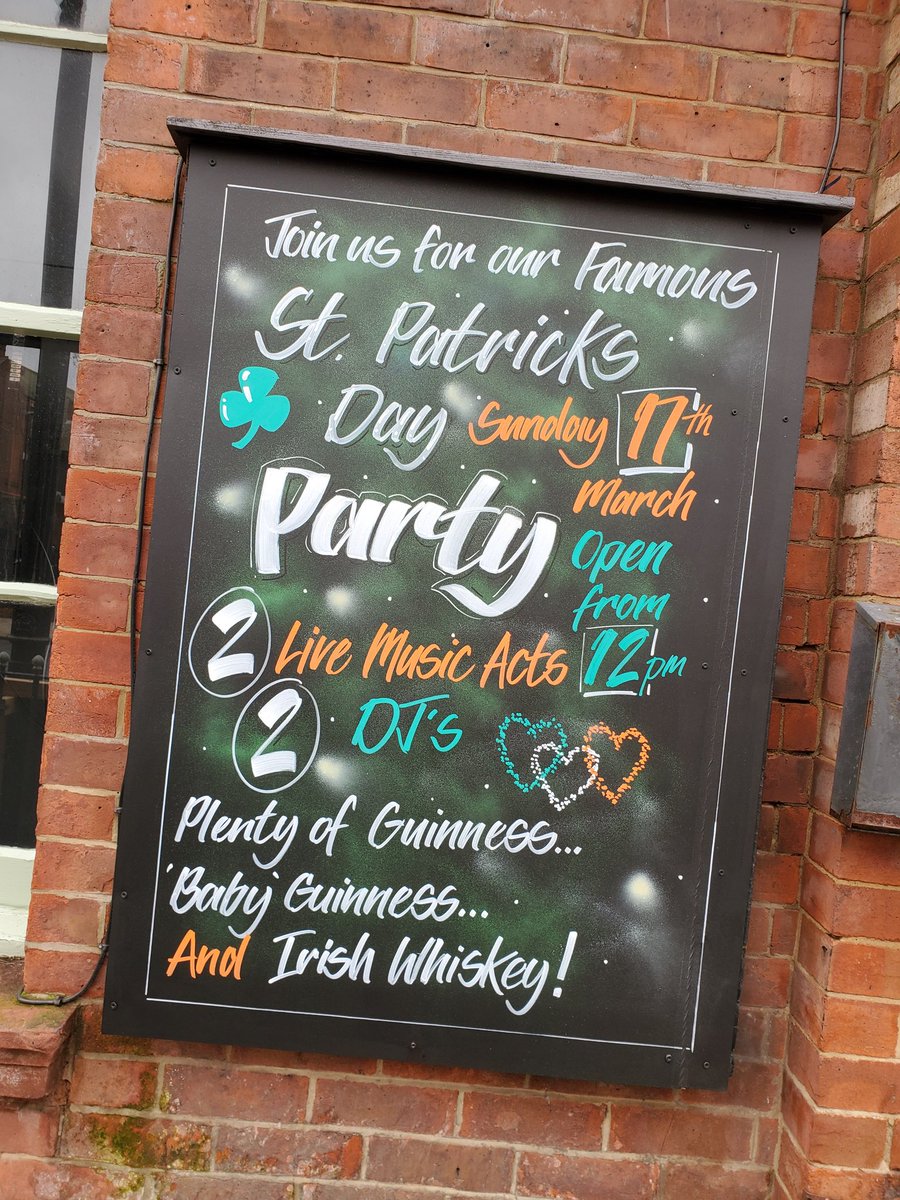 Join us for our Famous
St. Patricks
Day Sunday 17th
March
Party
Open
from
12pm
2 Live Music Acts
2 DJ's
Plenty of Guinness...
'Baby' Guinness...
And Irish Whiskey!